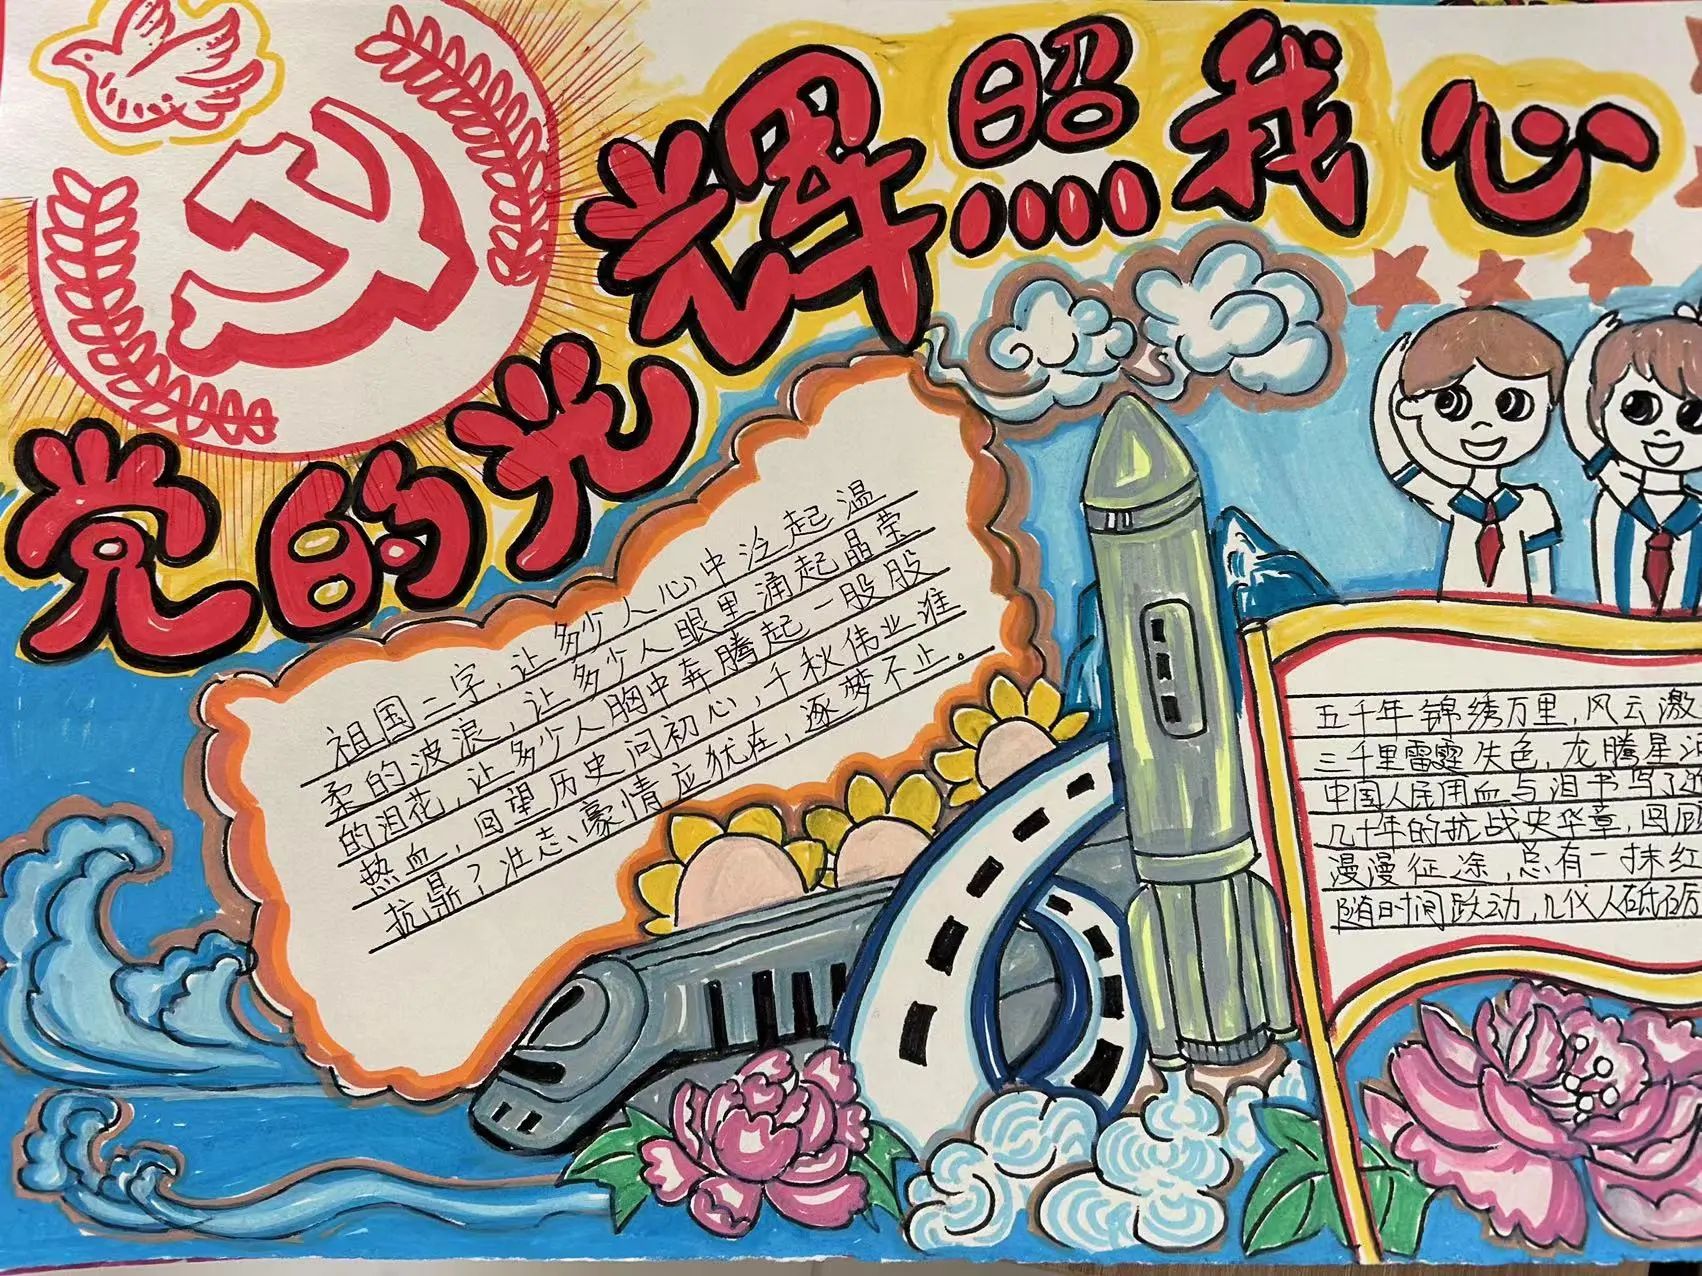 党的光辉照我心
祖国二字,让多少人心中泛起温
柔的波浪,让多少人眼里涌起晶莹
的泪花,让多少人胸中奔腾起一股股
热血,回望历史问初心,千秋伟业谁
抗鼎?壮志、豪情应犹在,逐梦不止。
五千年锦绣万里,风云激
三千里雷霆失色,龙腾星
中国人民用血与泪书写了
几十年的抗战史华章,回顾
漫漫征途,总有一抹红
随时间跃动,几代人砥砺